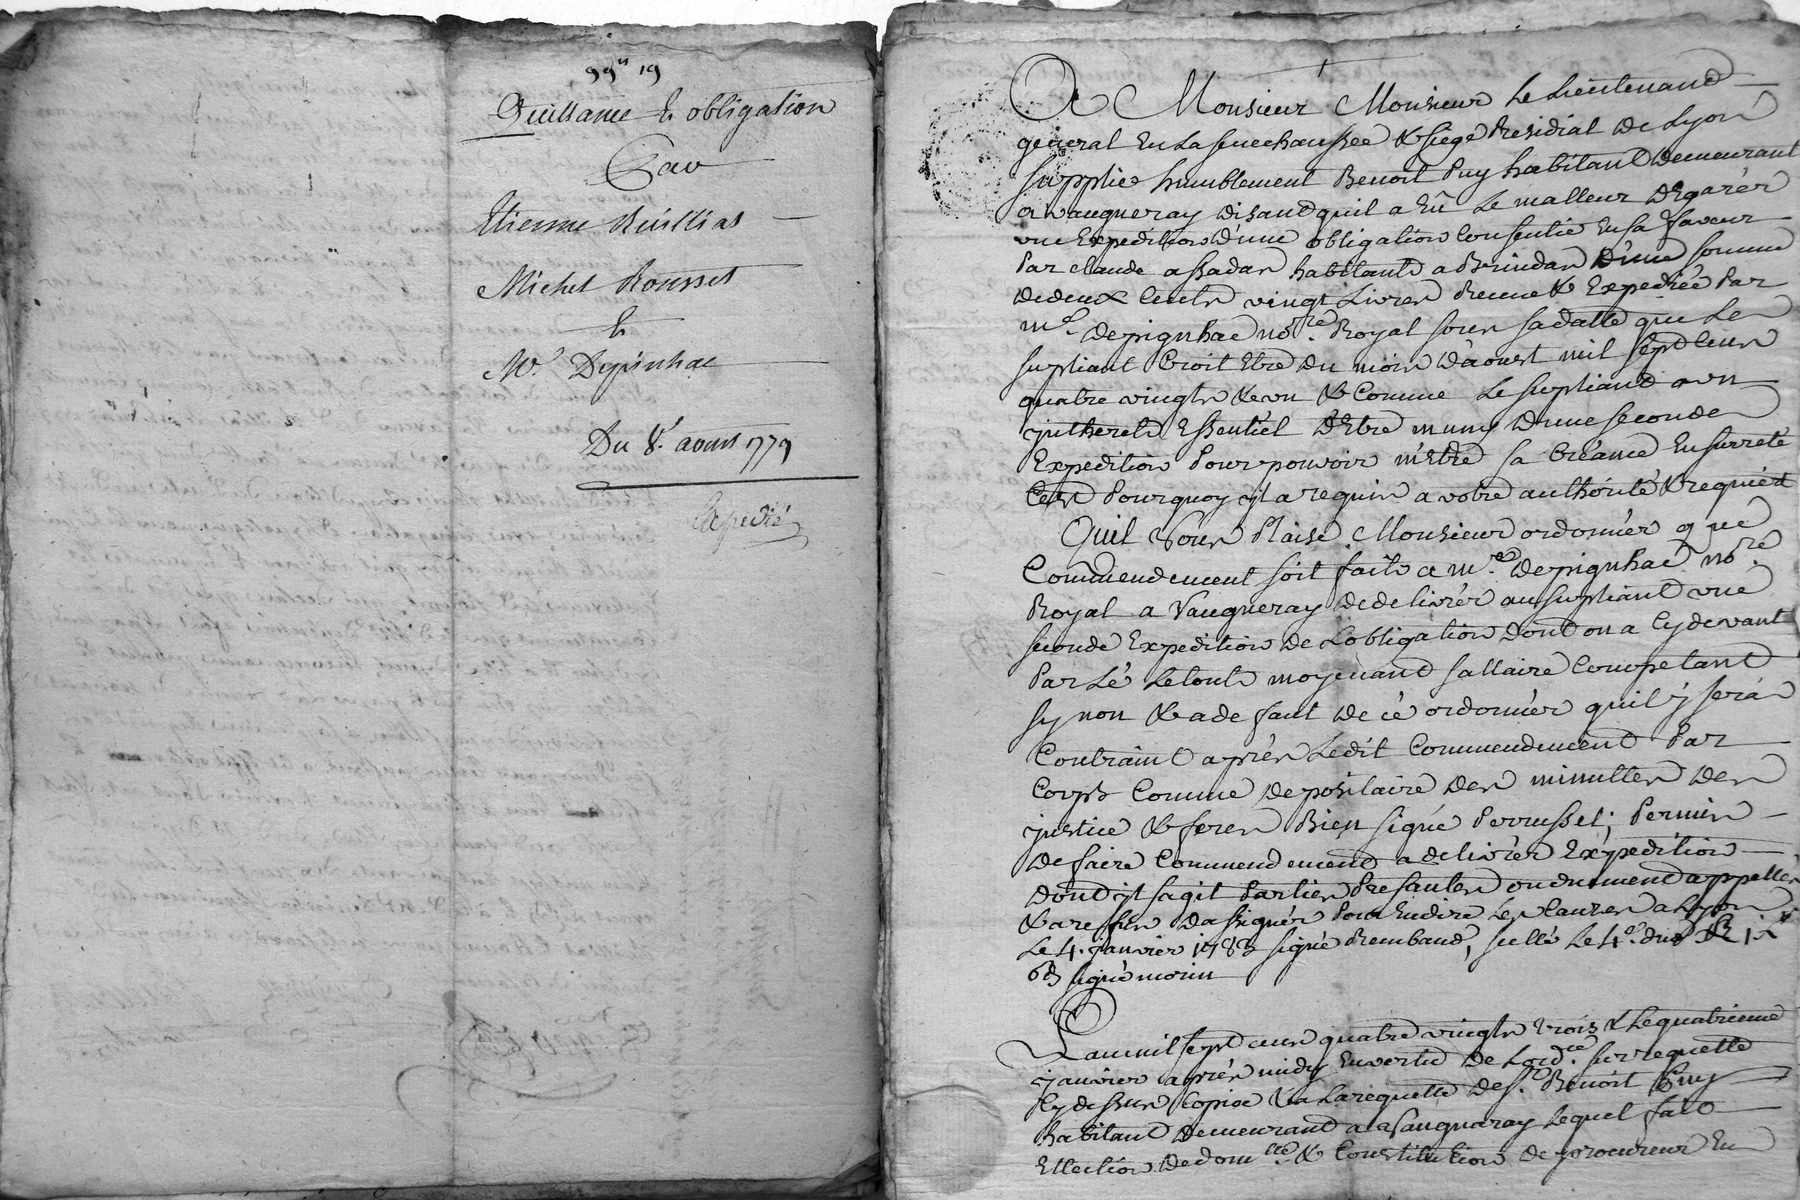 99 19
Quittance & obligation
Par
Etienne Ruillat
Michel Rousset
&
Me. Depinhac
Du 8. aoust 1779
Expedié
A Monsieur Monsieur Le Lieutenand
general En La senechaussée & siege Presidial De Lyon
supplie humblement Benoit Puy habitant Demeurant
a vaugneray Disant quil a Eû Le malleur DEgarér
une Expedition Dune obligation Consentie En sa faveur
Par claude assadas habitant a Brindas Dune somme
Dedeux Cents vingt Livres Recue & Expediée Par
me. depignhac nore. Royal sous sa datte que Le
supliant Croit Etre Du mois Daoust mil sept cens
quatre vingts & un & Comme Le supliand a un
jntherets Essentiel DEtre muny Dune seconde
Expedition Pour pouvoir mEttre sa Créance En surreté
Cest Pourquoy jl a requis a votre authorité & requiert
Quil Vous Plaise Monsieur ordonnér que
Commendement soit fait a me. Depignhac nore.
Royal a Vaugneray De delivrér au supliant une
seconde Expedition De Lobligation Dont on a Cy devant
Parlé Le tout moyenant sallaire Competant
sy non & a defaut De cé ordonnér quil y sera
Contraint après Ledit Commendement Par
Corps Comme Depositaire Des minuttes Des
justice & feres Bien signé Perrusset; Permis
De faire Commendement a delivrér Expedition
Dont jl sagit Parties Presantes ou dument appellés
& a reffus Dassignér Pour En dire Les Causes a Lyon
Le 4. janvier 1783 signé Rembaud, scellé Le 4e. dud R
6d signé morin
Lan mil sept cens quatre vingts trois & Le quatrieme
janvier après midy En vertu De Lordce. sur requette
Cy dessus Copiée & a La requette De sr. Benoit Puy
habitant Demeurant a Vaugneray Lequel fait
Ellection De domlle. & Constitution De procureur En